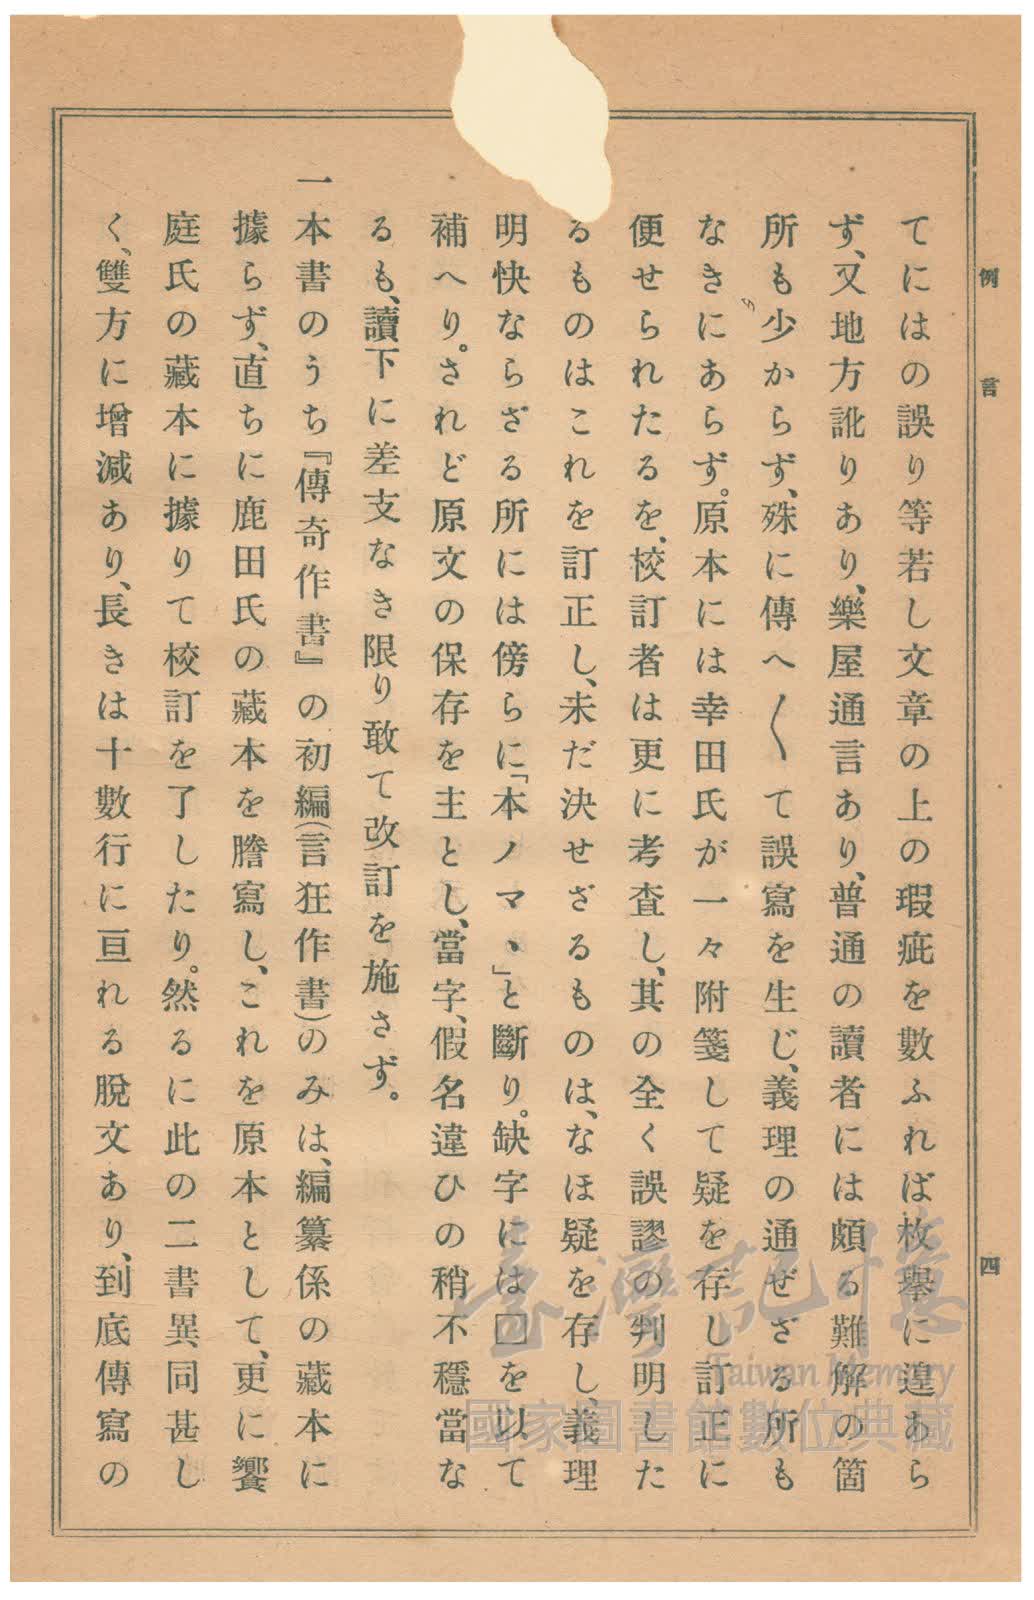 例言
四
てにはの誤り等若し文章の上の瑕疵を數ふれば枚擧に遑あら
ず、又地方訛りあり、樂屋通言あり、普通の讀者には頗る難解の箇
所も少からず、殊に傳へ〳〵て誤寫を生じ、義理の通ぜざる所も
なきにあらず。原本には幸田氏が一々附箋して疑を存し訂正に
便せられたるを、校訂者は更に考査し、其の全く誤謬の判明した
るものはこれを訂正し、未だ決せざるものは、なほ疑を存し、義理
明快ならざる所には傍らに「本ノマヽ」と斷り。缺字には□を以て
補へり。されど原文の保存を主とし、當字、假名違ひの稍不穩當な
るも、讀下に差支なき限り敢て改訂を施さず。
一本書のうち『傳奇作書』の初編(言狂作書)のみは、編纂係の藏本に
據らず、直ちに鹿田氏の藏本を謄寫し、これを原本として、更に饗
庭氏の藏本に據りて校訂を了したり。然るに此の二書異同甚し
く、雙方に增減あり、長きは十數行に亘れる脫文あり、到底傳寫の
臺灣記憶
Taiwan Memory
國家圖書館數位典藏